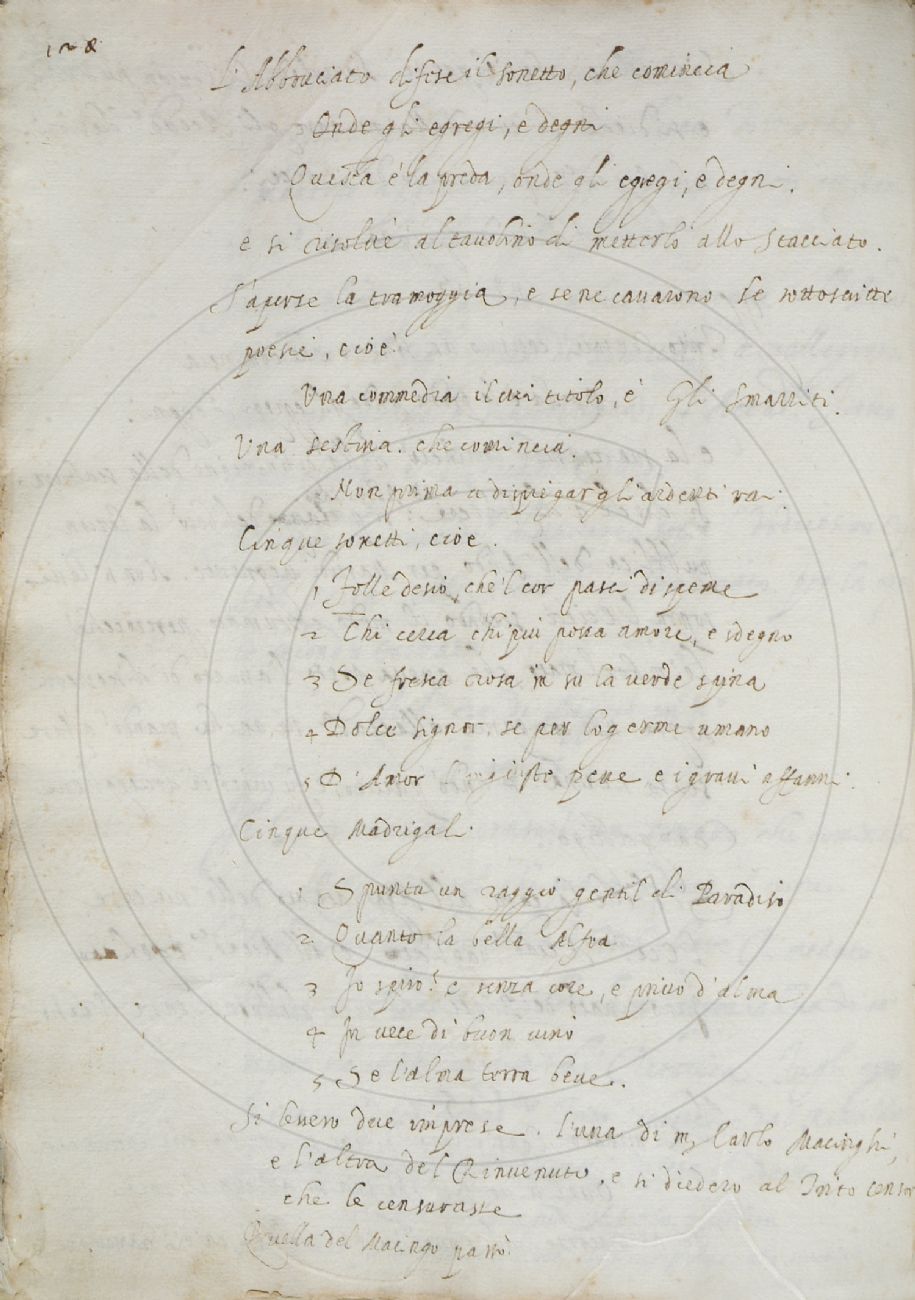 128
L'Abbruciato difese il sonetto, che comincia
Onde gli egregi, e degni
Questa è la preda, onde gli egregi, e degni.
e si risolvè al tavolino di metterlo allo stacciato.
S'aperse la tramoggia, e se ne cavarono le sottoscritte
poesie, cioè.
Una commedia il cui titolo, è Gli Smarriti.
Una sestina. che comincia.
Non prima a dispiegar gli ardenti rai.
Cinque sonetti, cioè.
1 Folle desio, che'l cor pasci di speme
2 Chi cerca chi più possa amore, e sdegno
3 Se fresca rosa in su la verde spina
4 Dolce signor, se per log erme umano
5 D'Amor l'ingiuste pene e i gravi affanni.
Cinque Madrigali.
1 Spunta un raggio gentil di Paradiso
2 Quanto la bella
3 Io spiro? e senza core, e privo d'alma
4 In vece di buon vino
5 Se l'alma terra beve.
Si lessero due imprese. l'una di m. Carlo Macinghi,
e l'altra del Rinvenuto, e si diedero al Trito censor
che le censurasse
Quella del Macingo passò.